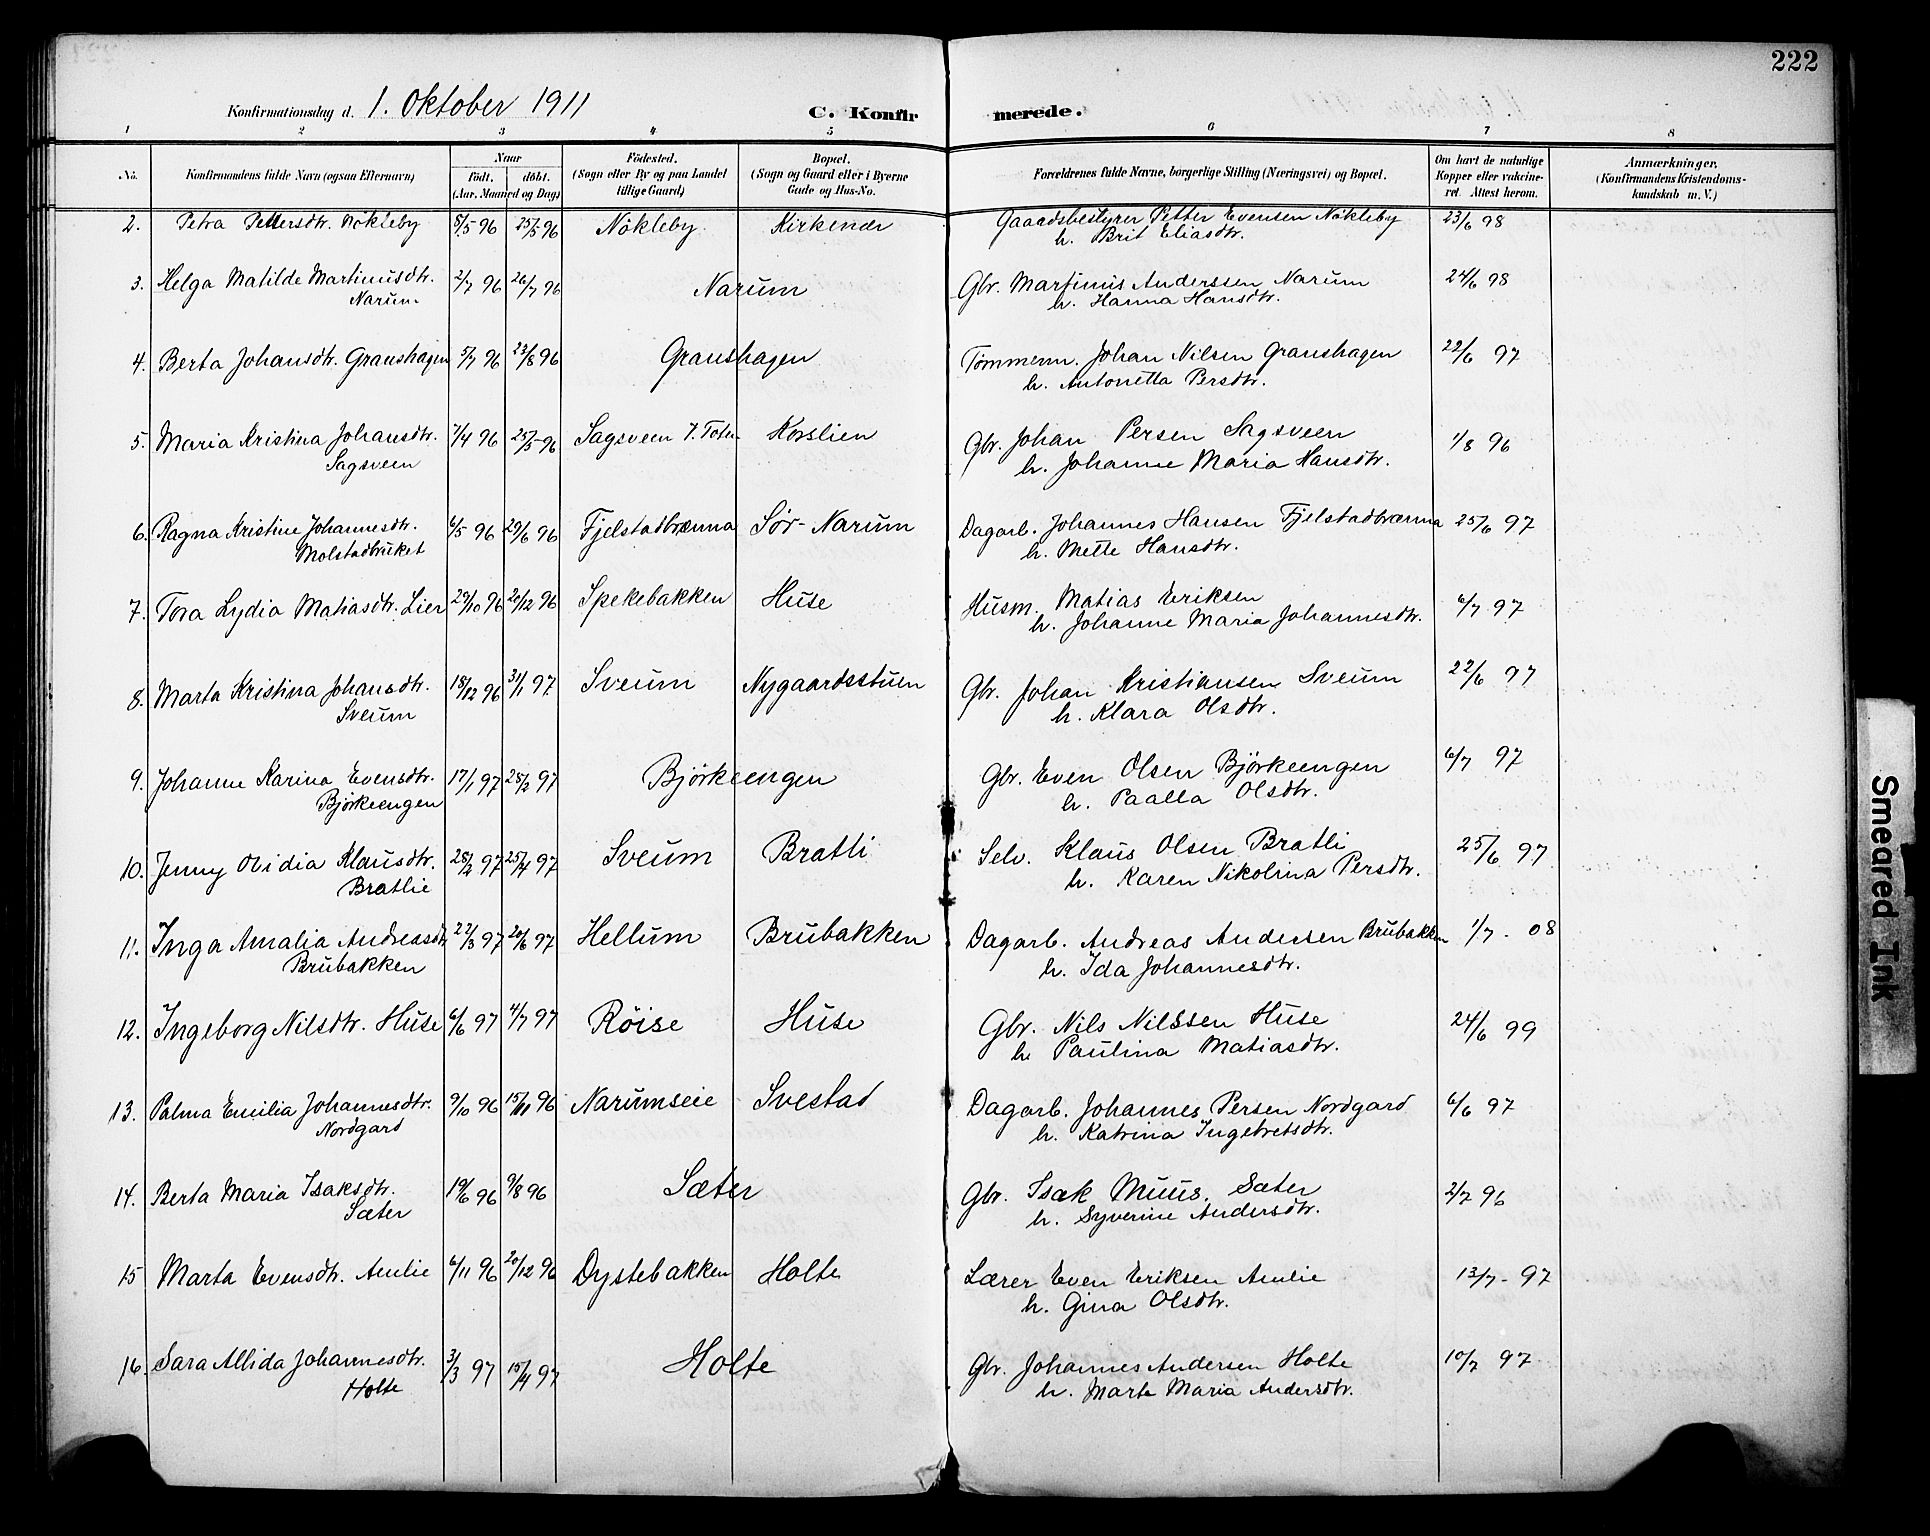 222
Konfirmationsdag d. 1. Oktober 1911 C. Konfirmerede.
1 2 3 4 5 6 7 8
No. Konfirmandens fulde Navn (ogsaa Efternavn) Naar Født. døbt. (Aar. Maaned og Dag) Fødested. (Sogn eller By og paa Landet tillige Gaard) Bopæl. (Sogn og Gaard eller i Byerne Gade og Hus-No. Forældrenes fulde Navne, borgerlige Stilling (Næringsvei) og Bopæl. Om havt de naturlige Kopper eller vakcineret. Attest herom. Anmærkninger. (Konfirmandens Kristendomskundskab m. V.)
2. Petra Pettersdtr. Nökleby 5/5 96 25/5 96 Nökleby. Kirkenær Gaardsbestyrer Petter Evensen Nökleby 23/6 98
h. Brit Eliasdtr.
3. Helga Matilde Martinusdtr. 2/7 96 26/7 96 Narum Gbr. Martinus Anderssen Narum 24/6 98
Narum h. Hanna Hansdtr.
4. Berta Johansdtr. Granshagen 5/7 96 23/8 96 Granshagen Tømmerm. Johan Nilsen Granshagen 22/6 97
h. Antonetta Persdtr.
5. Maria Kristina Johansdtr. 7/4 96 25/5 96 Sagsveen V. Toten Korslien Gbr. Johan Persen Sagsveen 1/8 96
Sagsveen h. Johanne Maria Hansdtr.
6. Ragna Kristine Johannesdtr. 6/5 96 29/6 96 Fjelstadbrænna Sør-Narum Dagarb. Johannes Hansen Fjelstadbrænna 25/6 97
Molstadbruket h. Mette Hansdtr.
7. Tora Lydia Matiasdtr. Lier 29/10 96 20/12 96 Spekebakken Huse Husm. Matias Eriksen 6/7 97
h. Johanne Maria Johannesdtr.
8. Marta Kristina Johansdtr. 18/12 96 31/1 97. Sveum Nygaardsstuen Gbr. Johan Kristiansen Sveum 22/6 97
Sveum h. Klara Olsdtr.
9. Johanne Karina Evensdtr. 17/1 97 28/2 97 Björkeengen Gbr. Even Olsen Björkeengen 6/7 97
Björkeengen h. Paalla Olsdtr.
10. Jenny Ovidia Klausdtr. 28/2 97 25/4 97 Sveum Bratli Selv. Klaus Olsen Bratli 25/6 97
Bratlie h. Karen Nikolina Persdtr.
11. Inga Amalia Andreasdtr 22/3 97 20/6 97 Hellum Brubakken Dagarb. Andreas Andersen Brubakken 1/7 - 08
Brubakken h. Ida Johannesdtr.
12. Ingeborg Nilsdtr. Huse 6/6 97 4/7 97 Röise Huse Gbr. Nils Nilssen Huse 24/6 99
h. Paulina Matiasdtr.
13. Palma Emilia Johannesdtr. 9/10 96 15/11 96 Narumseie Svestad Dagarb. Johannes Persen Nordgard 6/6 97
Nordgard h. Katrina Ingebretsdtr.
14. Berta Maria Isaksdtr. 19/6 96 9/8 96 Sæter Gbr. Isak Muus. Sæter 2/7 96
Sæter h. Syverine Andersdtr.
15 Marta Evensdtr. Amlie 6/11 96 20/12 96 Dystebakken Holte Lærer Even Eriksen Amlie 13/7- 97
h. Gina Olsdtr.
16. Sara Allida Johannesdtr. 3/3 97 15/4 97 Holte Gbr. Johannes Andersen Holte 10/7 97
Holte h. Marte Maria Andersdtr.
Smeared Ink